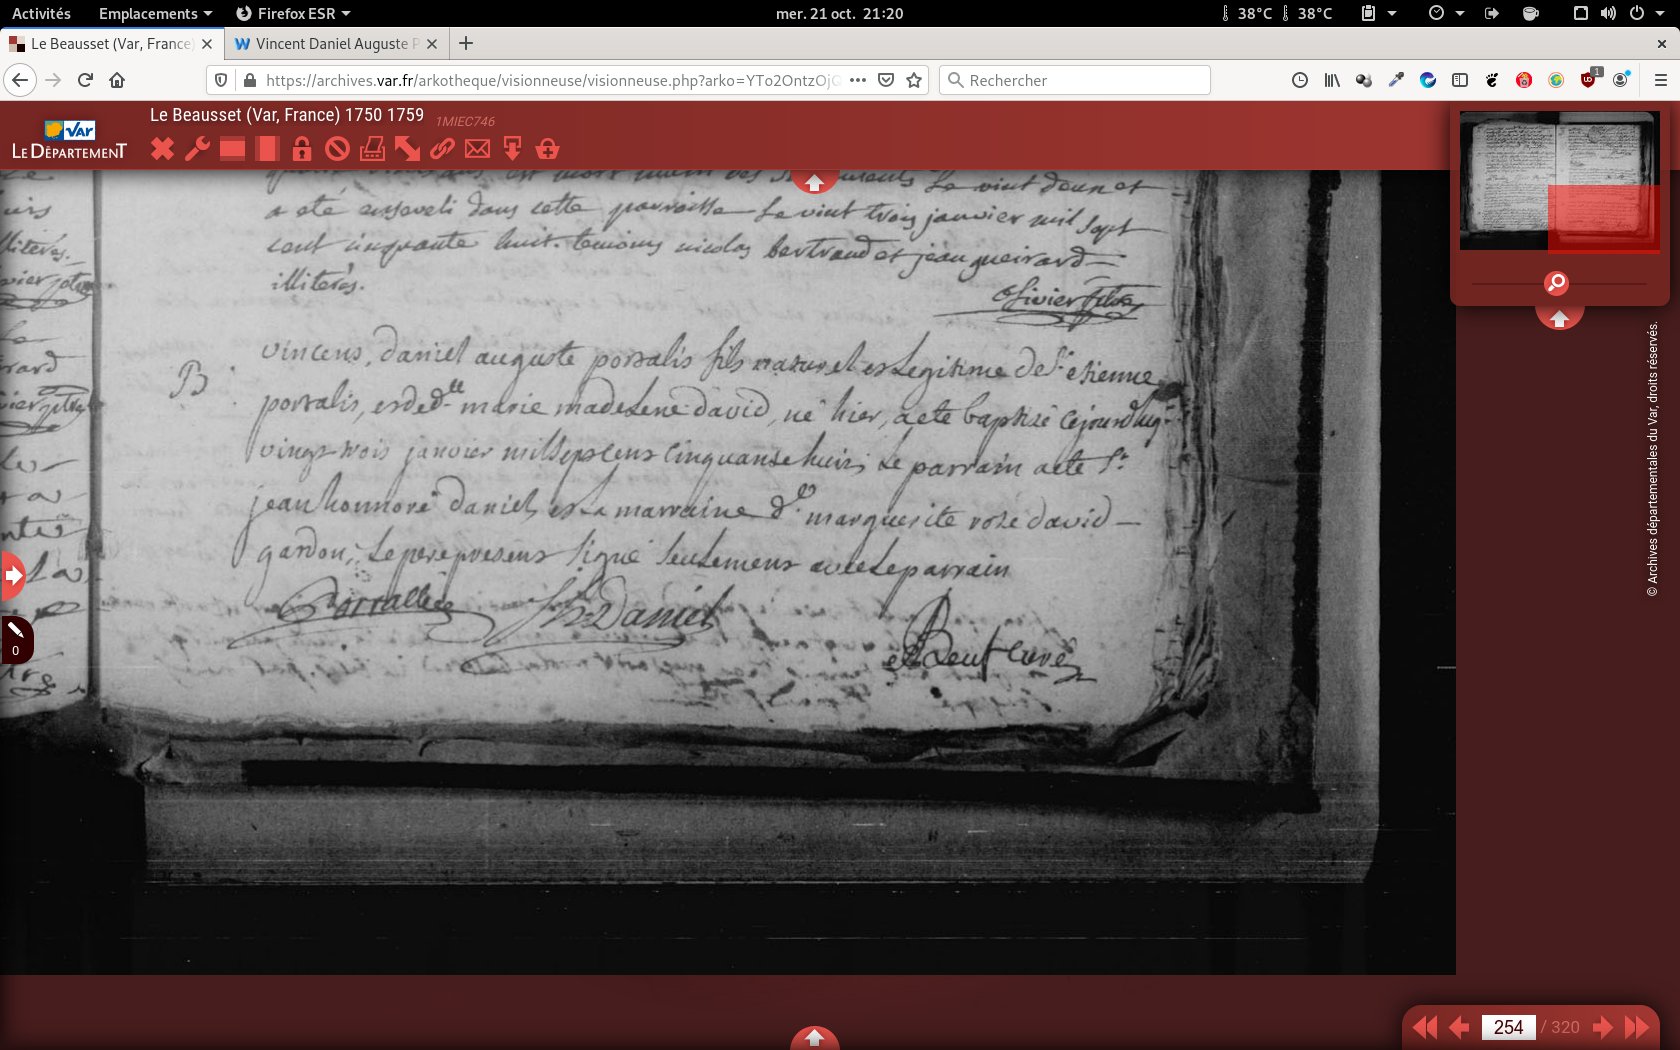 Activités Emplacements Firefox ESR mer. 21 oct. 21:20 38°C 38°C
Le Beausset (Var, France) Vincent Daniel Auguste P
https://archives.var.fr/arkotheque/visionneuse/visionneuse.php?arko=YTo2OntzOjG Rechercher
Le Beausset (Var, France) 1750 1759 1MIEC746
VAR
LE DÉPARTEMENT
a eté enseveli dans cette parroisse Le vint trois janvier mil sept
cent cinquante huit. temoins nicolas bertrand et jean gueirard
illiterés.
olivier ptre
B
vincens, daniel auguste portalis fils naturel et Legitime de Sr etienne
portalis, et de dlle marie madelene david, né hier, a eté baptisé cejourdhuy
vingt trois janvier mil sept cens cinquante huit, Le parrain a eté Sr
jean honnoré daniel et La marraine dlle marguerite rose david
gardon, Le pere present signé seulement avec Le parrain
Portallis Daniel
curé
© Archives départementales du Var, droits réservés.
0
254 / 320